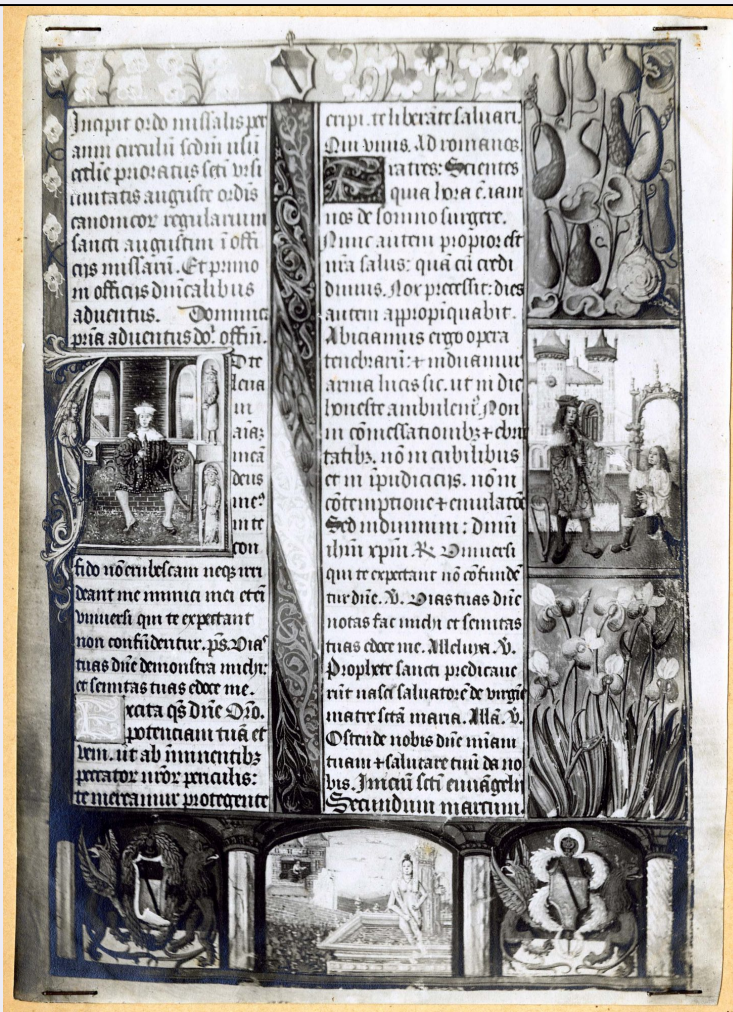 Incipit ordo missalis per
anni circulū scdm usū
ecclie prioratus scti ursi
civitatis auguste ordīs
canonicor regularium
sancti augustini ī offi
ciis missarū. Et primo
in officiis dnīcalibus
adventus. Dominic
pria adventus dō. offm.
D te
levaui
aiaʒ
meā
deus
meꝰ
in te
con
fido nō erubescam neqʒ irri
deant me inimici mei eteī
universi qui te expectant
non confūdentur. ps. Viaˢ
tuas dn̄e demonstra michi:
et semitas tuas edoce me.
Excita qs dn̄e Oro.
potenciam tuā et
veni. ut ab iminentibʒ
peccator nr̄or periculis:
te mereamur protegente
eripi. te liberāte salvari.
Qui vivis. Ad romanos.
Fratres: Scientes
quia hora ē. iam
nos de somno surgere.
Nunc autem propior est
nr̄a salus: quā cū credi
dimus. Nox precessit: dies
autem appropiquabit.
Abiciamus ergo opera
tenebrarū: ⁊ induamur
arma lucis sic. ut in die
honeste ambulem̄. Non
in comessationibʒ ⁊ ebrie
tatibʒ. nō in cubilibus
et in īpudiciciis. nō in
cōtemptione ⁊ emulatōe
Sed induimini: dnm̄
ihm̄ xpm̄. ℟. Universi
qui te expectant nō cōfundē
tur dn̄e. ℣. Vias tuas dn̄e
notas fac michi et semitas
tuas edoce me. Alleluya. ℣.
Prophete sancti predicave
rūt nasci salvatorē de virgīe
matre sctā maria. Allā. ℣.
Ostende nobis dn̄e mīam
tuam ⁊ salutare tuū da no
bis. Iniciū scti euuāgelii
Secundum marcum.